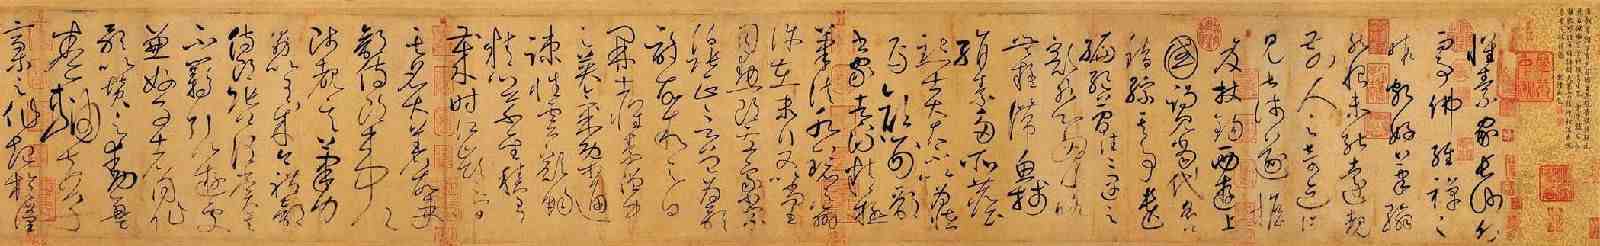 懷素家長沙幼而
事佛經禪之
暇頗好筆翰
然恨未能遠覩
前人之奇迹所
見甚淺遂擔
笈杖錫西遊上
國謁見當代名公
錯綜其事遺
編絕簡往往遇之
豁然心胸略
無疑滯魚牋
絹素多所塵
點士大夫不以為怪
焉顏刑部
書家者流精極
筆法水鏡之辨
許在末行又以尚書
司勳郎盧象小宗伯
張正言曾為歌詩
故敘之曰
開士懷素僧中
之英氣概通
疏性靈豁暢
精心草聖積有
歲時江嶺之間
其名大著故吏
部侍郎韋公
陟覩其筆力
勗以有成今禮部
侍郎張公謂賞其
不羈引以遊處
兼好事者同作
歌以贊之動盈
卷軸夫草
稿之作起於漢